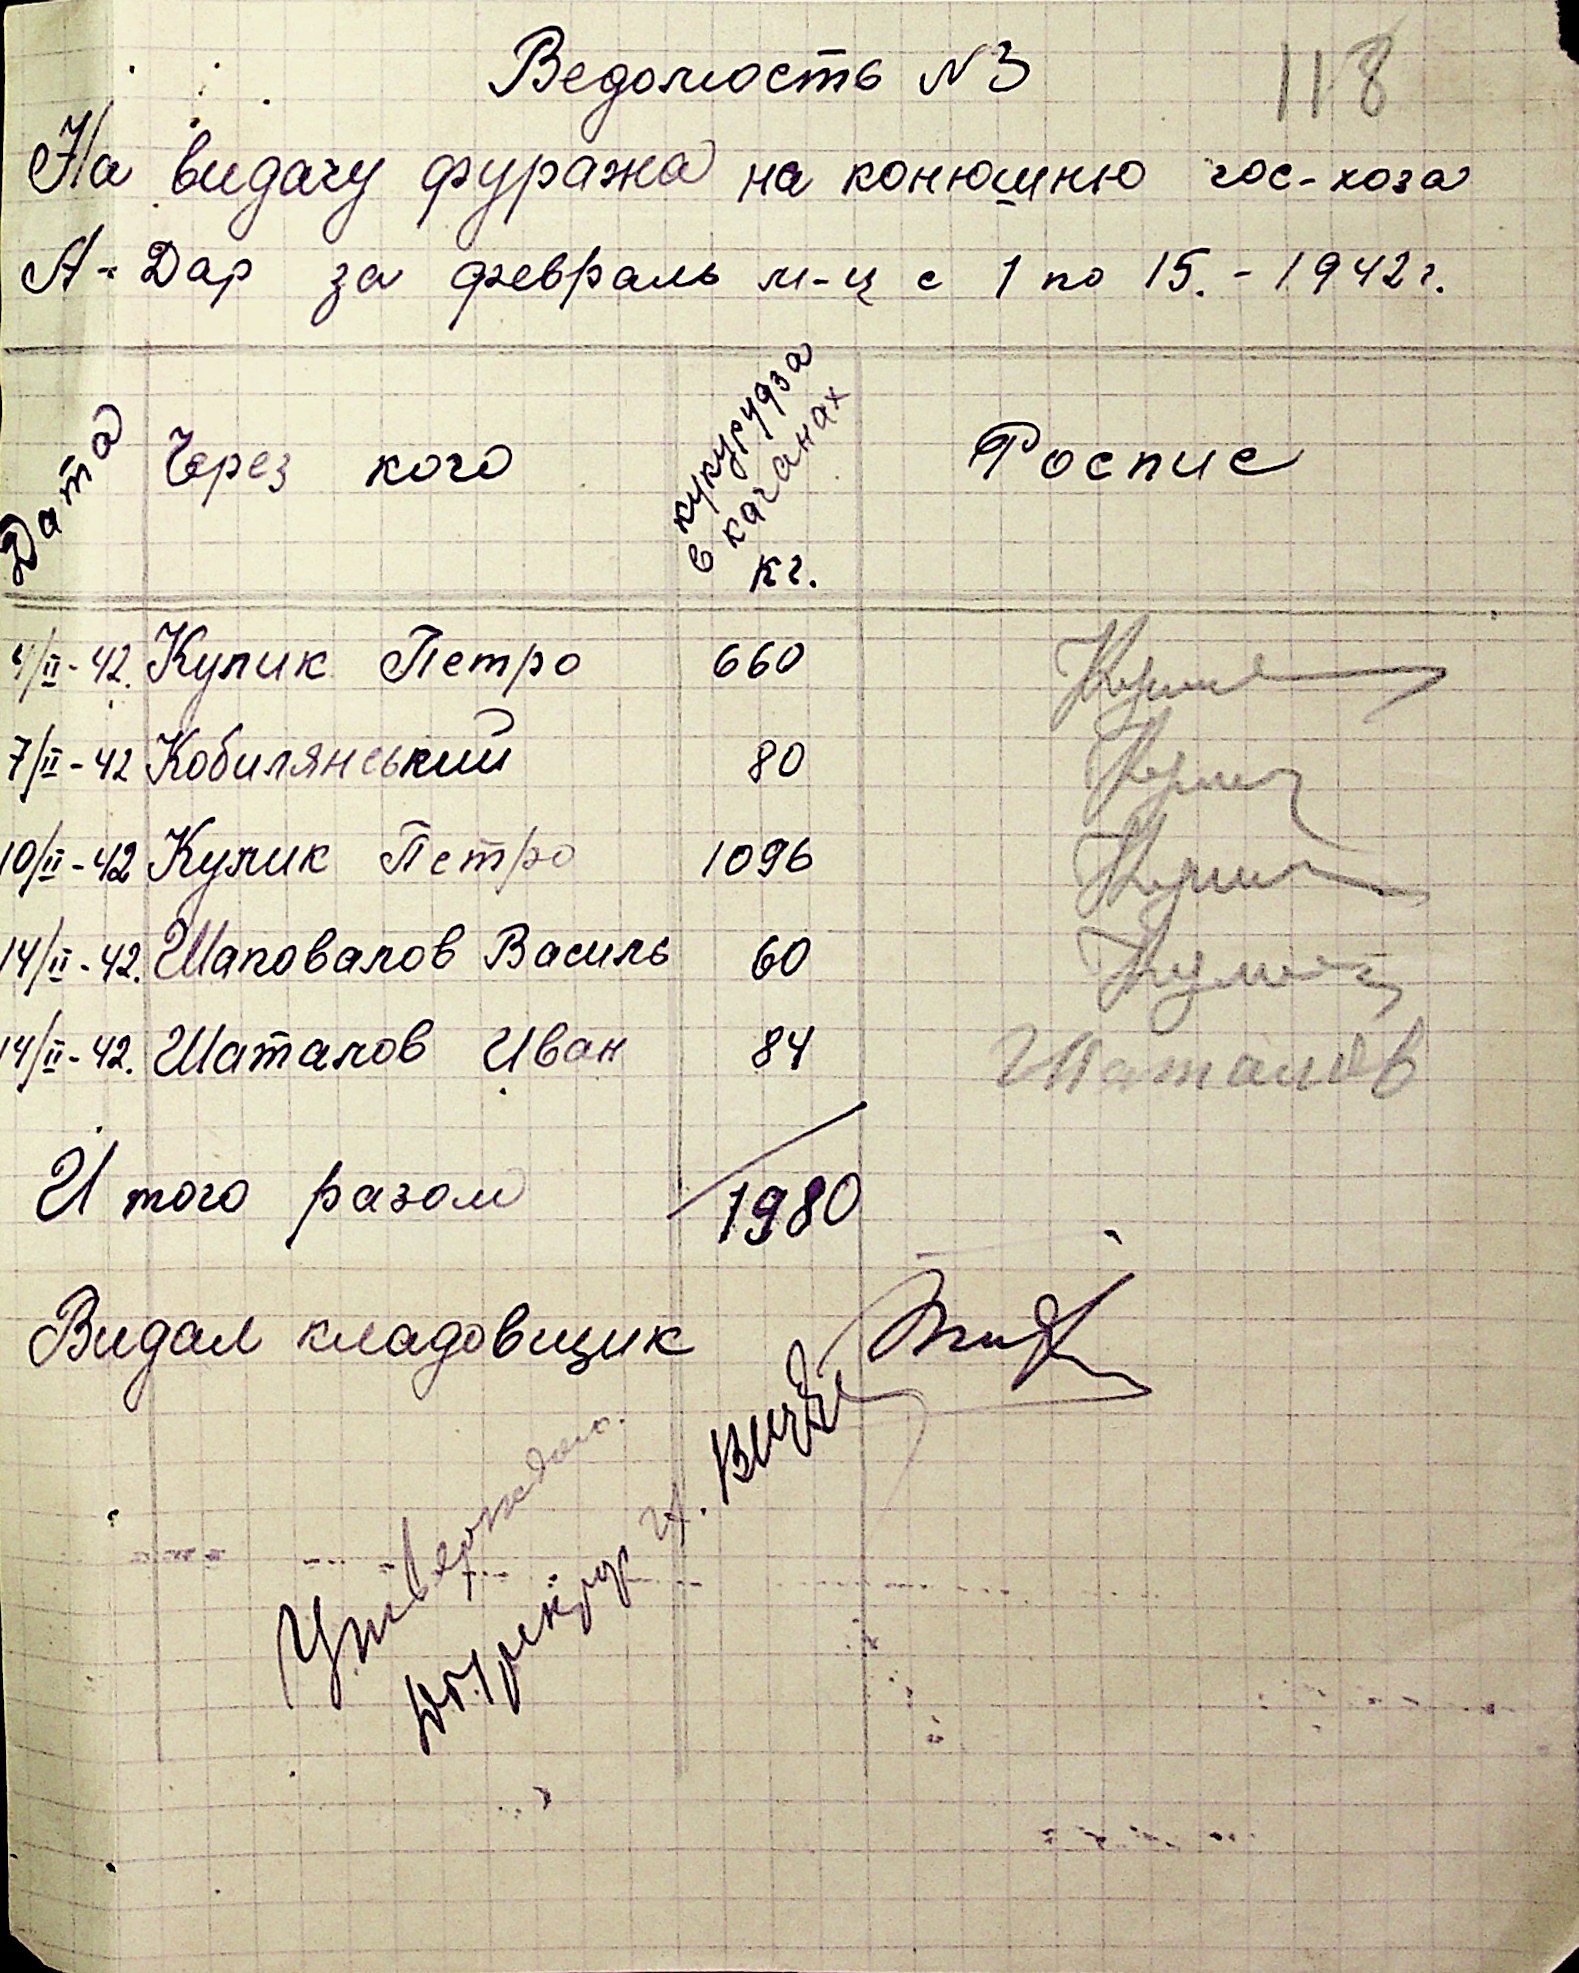 118
Ведомость №3
На видачу фуража на конюшню гос-хоза
А-Дар за февраль м-ц с 1 по 15.-1942г.
Дата Через кого кукурудза в качанах кг. Роспис
4/II-42. Кулик Петро 660 Кулик
7/II-42 Кобилянський 80 Кулик
10/II-42 Кулик Петро 1096 Кулик
14/II-42. Шаповалов Василь 60 Кулик
14/II-42. Шаталов Иван 84 Шаталов
И того разом 1980
Видал кладовщик
Утверждаю.
Директор